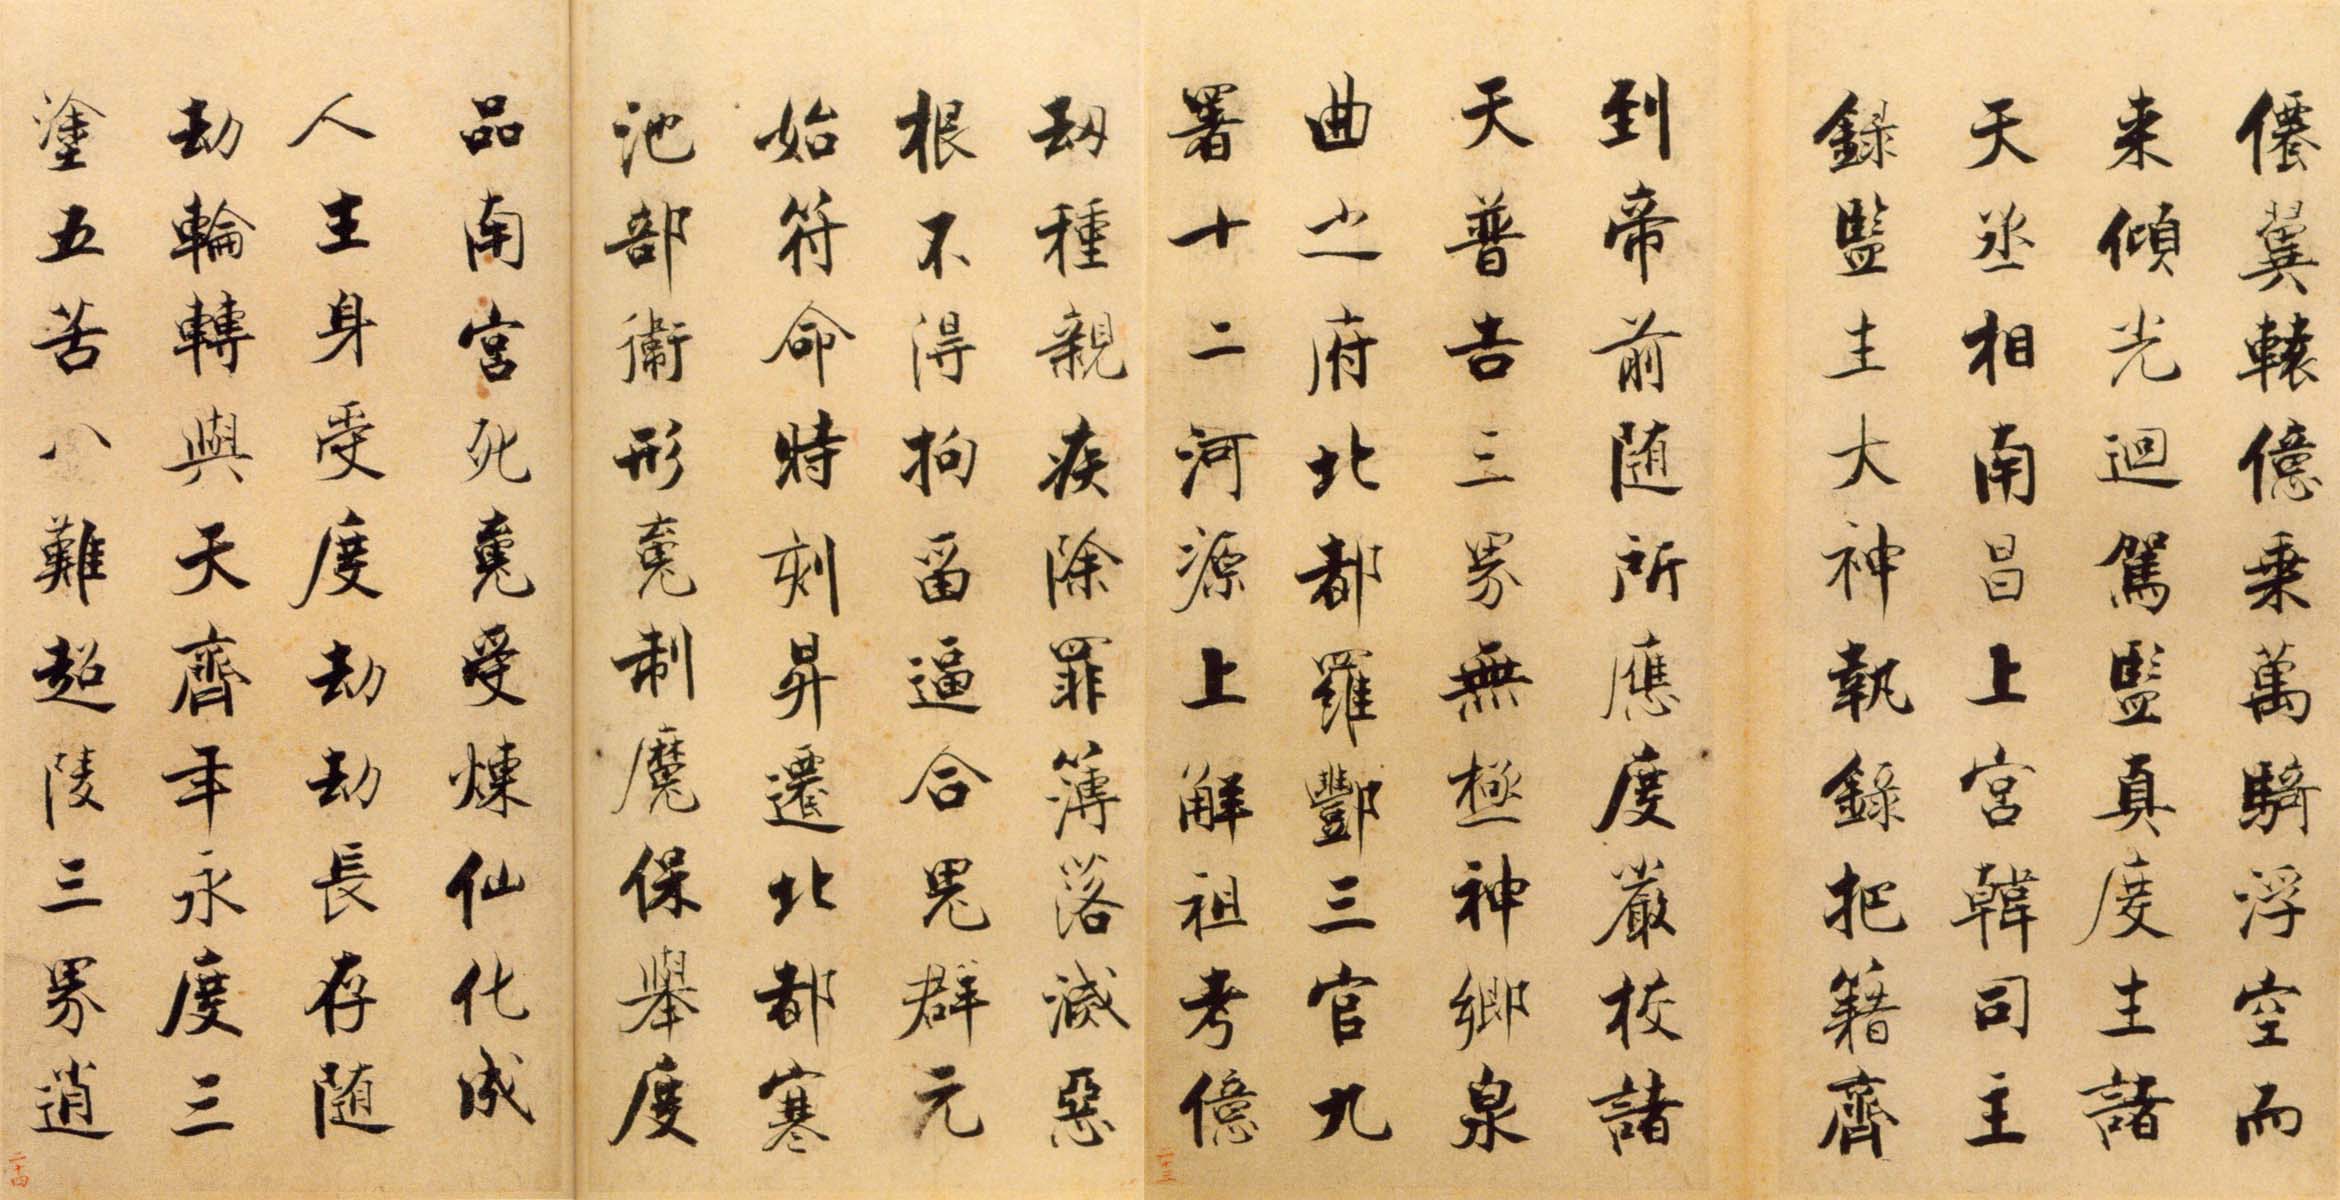 僊翼轅億乗萬騎浮空而
来傾光迴駕監真度生諸
天丞相南昌上宮韓司主
録監生大神執錄把籍齊
到帝前随所應度嚴校諸
天普告三界無極神鄉泉
曲之府北都羅酆三官九
署十二河源上解祖考億
劫種親疾除罪簿落滅惡
根不得拘留逼合鬼群元
始符命時刻昇遷北都寒
池部衛形䰟制魔保舉度
品南宮死䰟受煉仙化成
人生身受度劫劫長存随
劫輪轉與天齊年永度三
塗五苦八難超陵三界逍
二十三
二十四